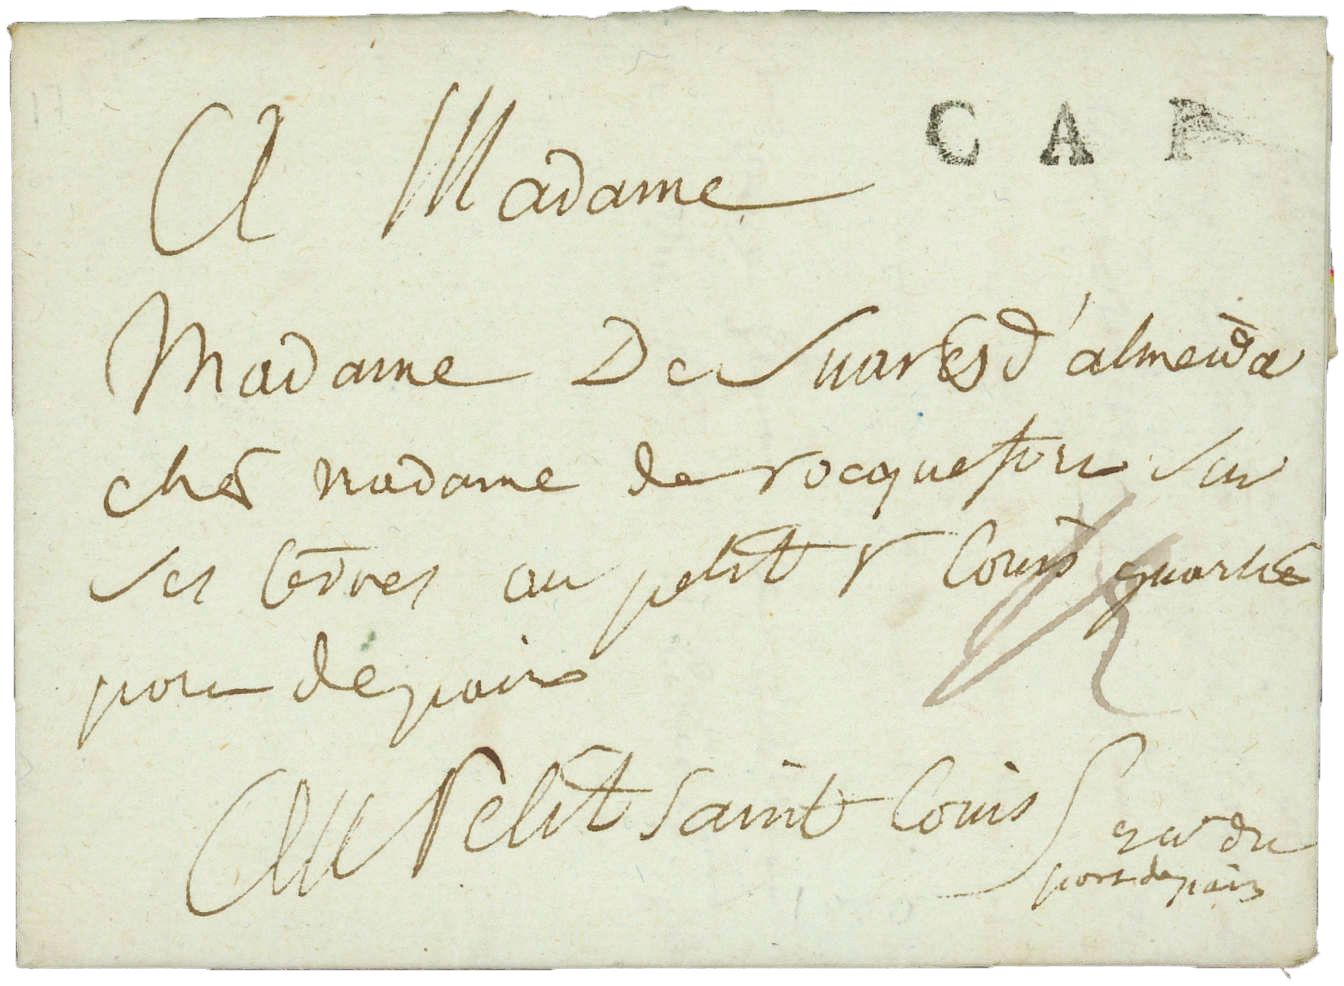 CAP
A Madame
Madame De Suares d'almeida
ches madame de rocquefort sur
ses terres au petit st Louis quartié
port de paix
Au Petit saint Louis
qer du
port de paix